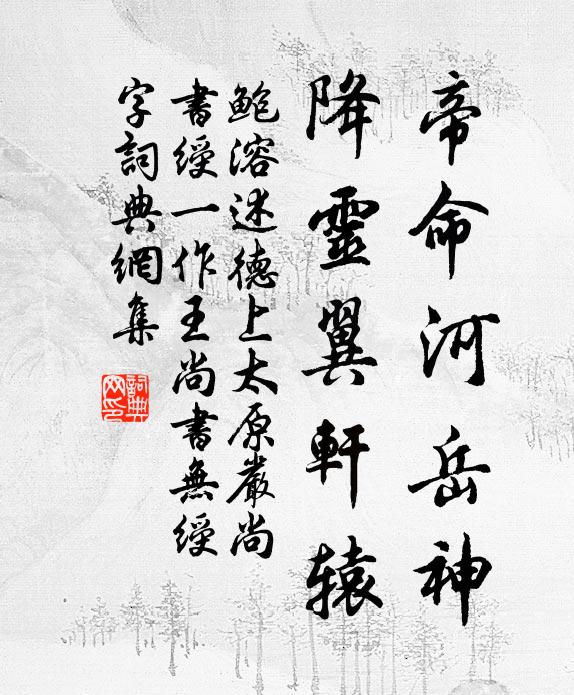 帝命河岳神
降靈翼軒辕
鲍溶述德上太原嚴尚
書绶一作王尚書無绶
字詞典網集
詞典
网印